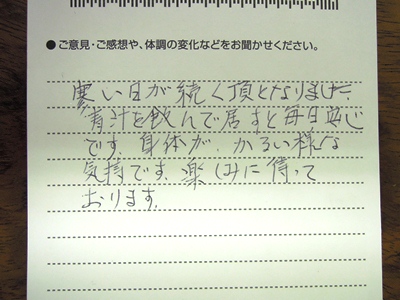 ●ご意見・ご感想や、体調の変化などをお聞かせください。
寒い日が続く頃となりました、
青汁を飲んで居ますと毎日安心
です。身体が、かるい様な
気持です。楽しみに待って
おります。